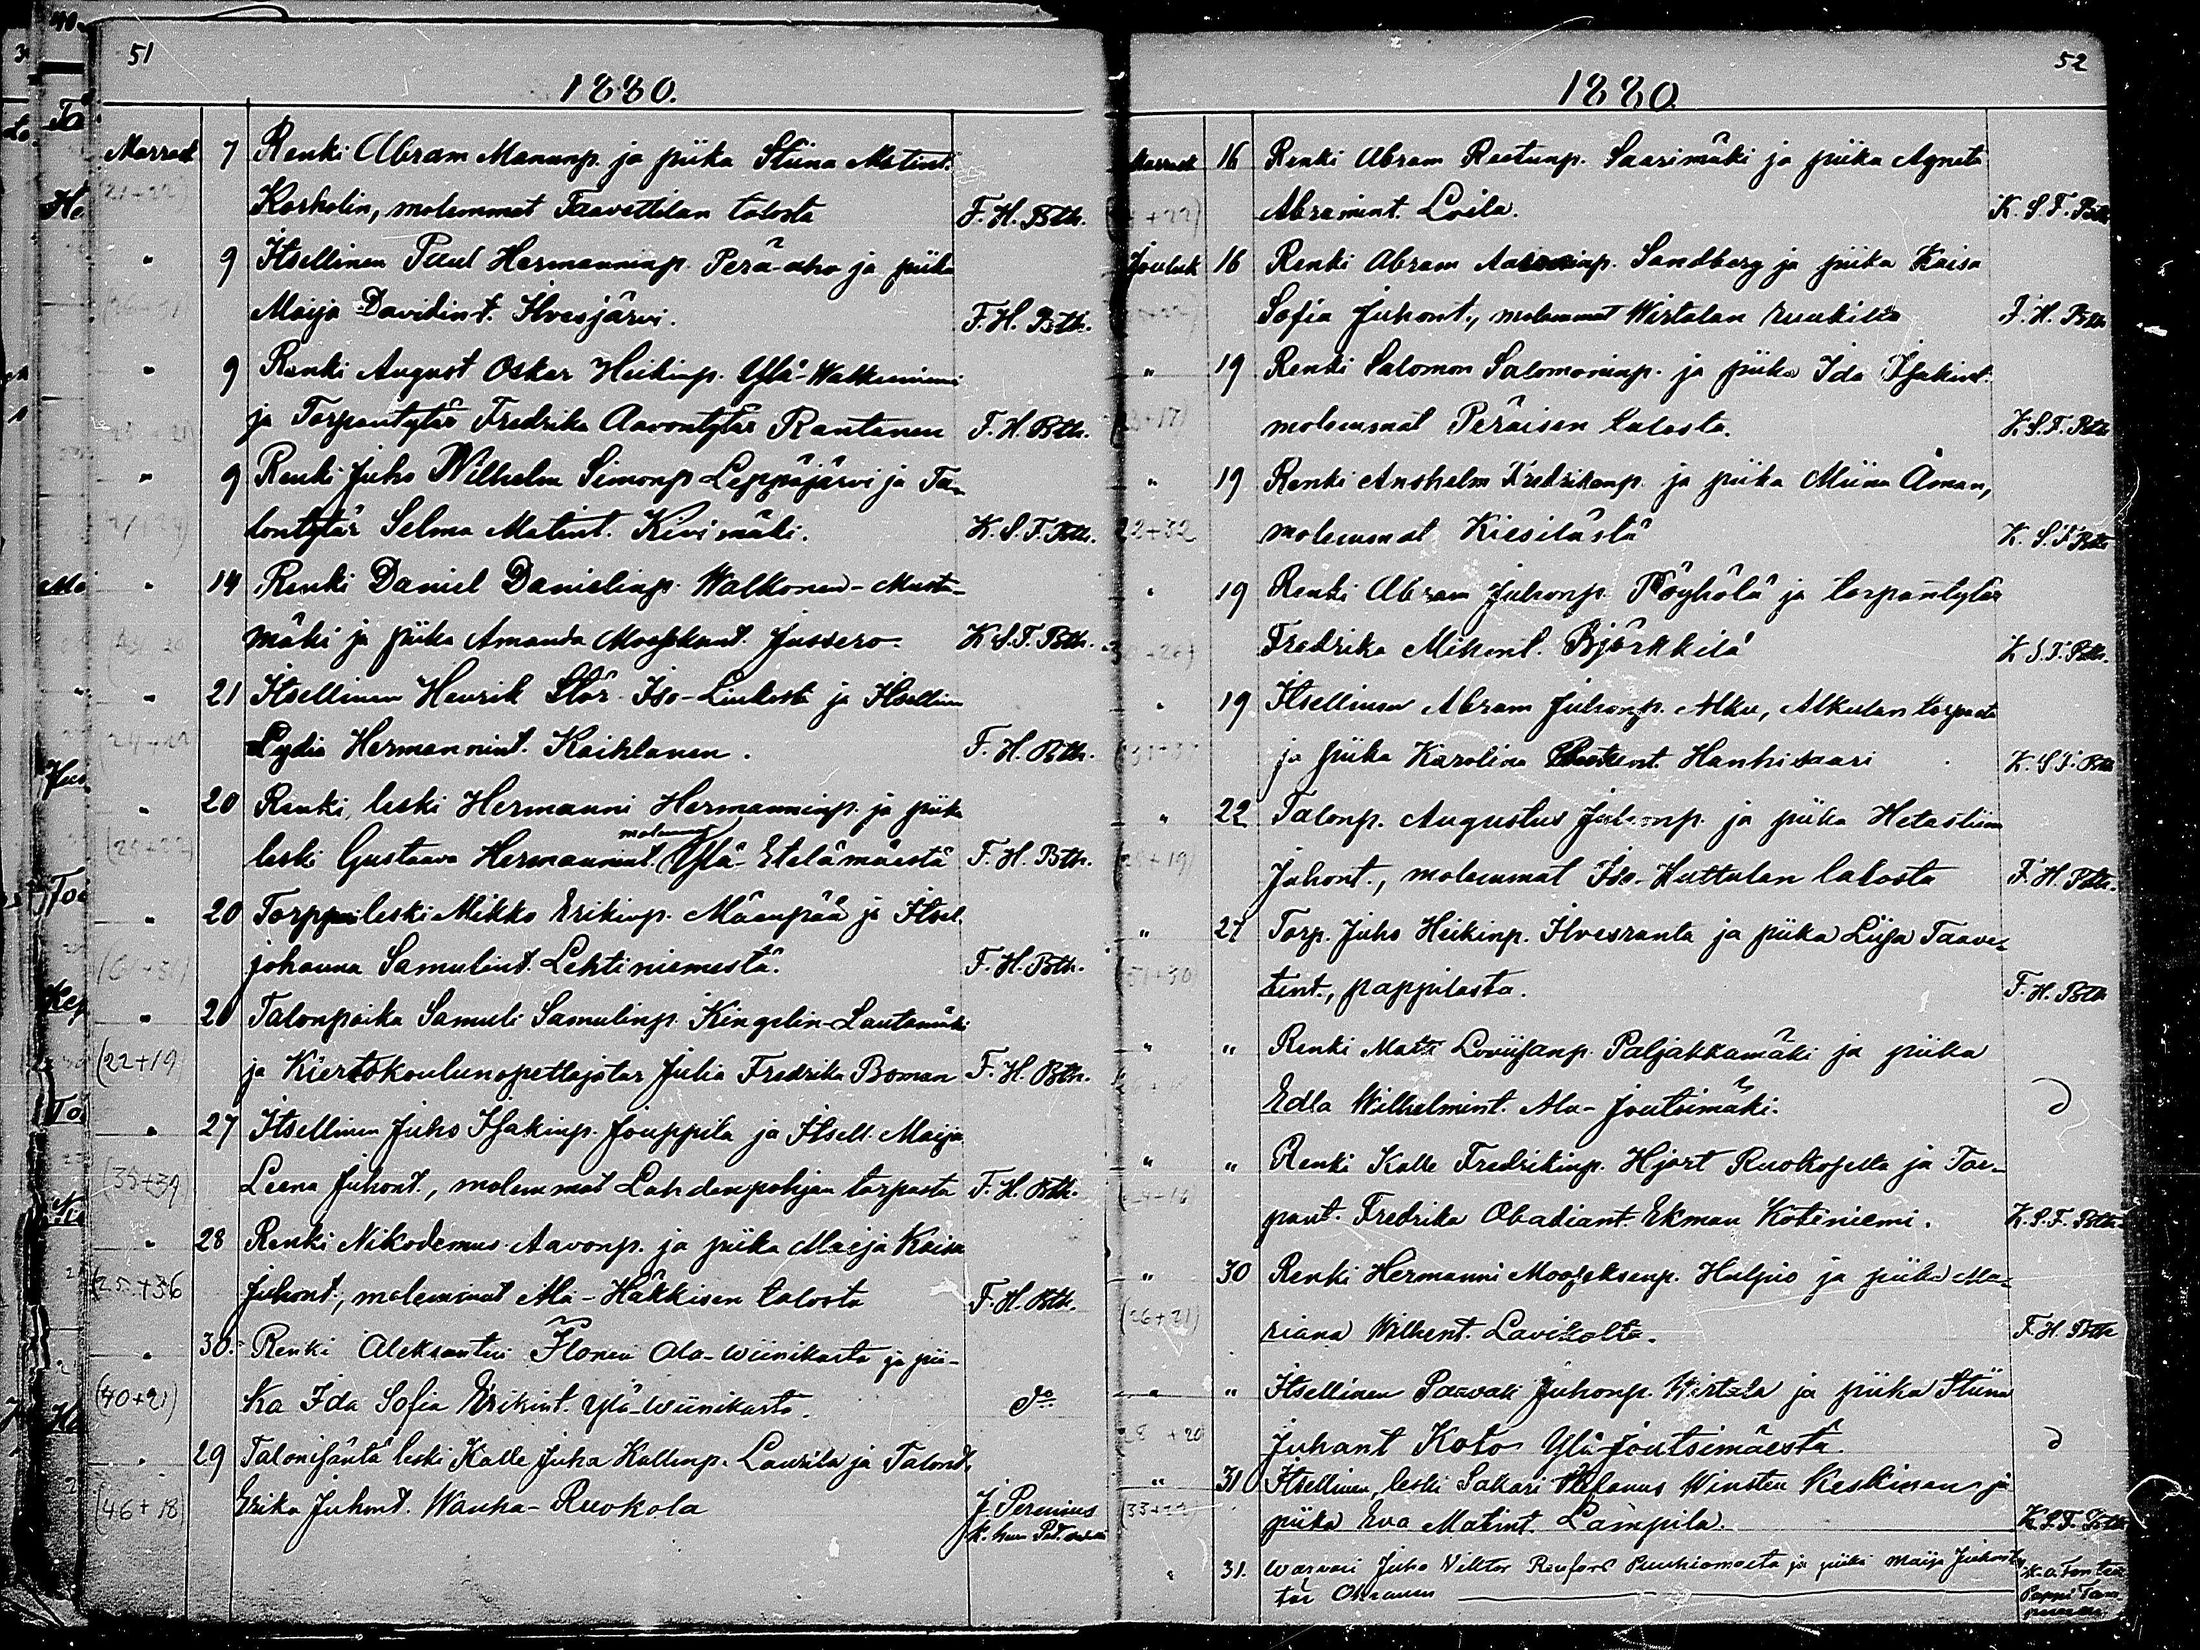 51
1880.
Marrask 7 Renki Abram Manunp. ja piika Stiina Matint.
(21+22) Korholin, molemmat Taavettilan talosta F. H. Bth.
" 9 Itsellinen Paul Hermanninp. Perä-aho ja piika
Maija Davidint. Ilvesjärvi. F. H. Bth.
" 9 Renki August Oskar Heikinp. Ylä-Walkeiniemi
ja Torpantytär Fredrika Aavontytär Rantanen F. H. Bth.
" 9 Renki Juho Wilhelm Simonp Leppäjärvi ja Ta-
lontytär Selma Matint. Kivimäki. K. S. F. Bth.
" 14 Renki Daniel Danielinp. Walkonen-Musta-
mäki ja piika Amanda Jussero. K. S. F. Bth.
" 21 Itsellinen Henrik Stör Iso- ja Itsellin
Lydia Hermannint. Kaihlanen. F. H. Bth.
" 20 Renki, leski Hermanni Hermanninp. ja piika
leski Gustaava Hermannint. Ylä-Etelämäestä F. H. Bth.
" 20 leski Mikko Erikinp. Mäenpää ja Itsel.
Johanna Samulint. Lehtiniemestä. F. H. Bth.
" 20 Talonpoika Samuli Samulinp. Kingelin-Lautamäki
(22+19) ja Kiertokoulunopettajatar Julia Fredrika Boman F. H. Bth.
" 27 Itsellinen Juho Isakinp. Jouppila ja Itsell. Maija
(35+39) Leena Juhont., molemmat Lahdenpohjan torpasta F. H. Bth.
" 28 Renki Nikodemus Aavonp. ja piika Maija Kaisa
(25+36 Juhont., molemmat Ala-Häkkisen talosta F. H. Bth.
" 30. Renki Aleksanteri Ilonen Ala-wiinikasta ja pii-
(40+21) ka Ida Sofia Erikint. Ylä-wiinikasta. do
" 29 Talonisäntä leski Kalle Juha Kallenp. Laurila ja Talont.
(46+18) Erika Juhont. Wanha-Ruokola J. Perenius
52
1880
Marrask 16 Renki Abram Reetunp. Saarimäki ja piika Agneta
Abramint. Loila. K. S. F. Bth
Jouluk 16 Renki Abram Sandberg ja piika Kaisa
Sofia Juhont., molemmat Wirtalan F. H. Bth
" 19 Renki Salomon Salomoninp. ja piika Ida Isakint.
molemmat Peräisen talosta. K. S. F. Bth
" 19 Renki Anshelm Fredrikinp. ja piika Miina Åman,
22+32 molemmat Kiesilästä K. S. F. Bth
" 19 Renki Abram Juhonp. Pöyhölä ja torpantytär
Fredrika Mikont. Björkkilä K. S. F. Bth.
" 19 Itsellinen Abram Juhonp. Alku, Alkulan torpasta
ja piika Karolina Hanhisaari K. S. F. Bth
" 22 Talonp. Augustus Juhonp. ja piika Hetastiina
Juhont., molemmat Iso-Huttulan talosta F. H. Bth.
" 27 Torp. Juho Heikinp. Ilvesranta ja piika Liisa Taave-
tint., pappilasta. F. H. Bth
" " Renki Matts Loviisanp. Paljakkamäki ja piika
Edla Wilhelmint. Ala-Joutsimäki.
" " Renki Kalle Fredrikinp. Hjort ja Tor-
pant. Fredrika Obadiant. Ekman Kotiniemi. K. S. F. Bth
" 30 Renki Hermanni Mooseksenp. Huljus ja piika Ma-
(26+21) riana Wilhent. Lavikolta. F. H. Bth
" " Itsellinen Paavali Juhonp Wirtala ja piika Stiina
28 +20 Juhant Koto Ylä-Joutsimäestä
" 31 Itsellinen, leski Sakari Stefanus Winsten Keskinan ja
(33+22) piika Eva Matint. Lampila. K. S. F. Bth
" 31. Juho Viktor ja piika Maija